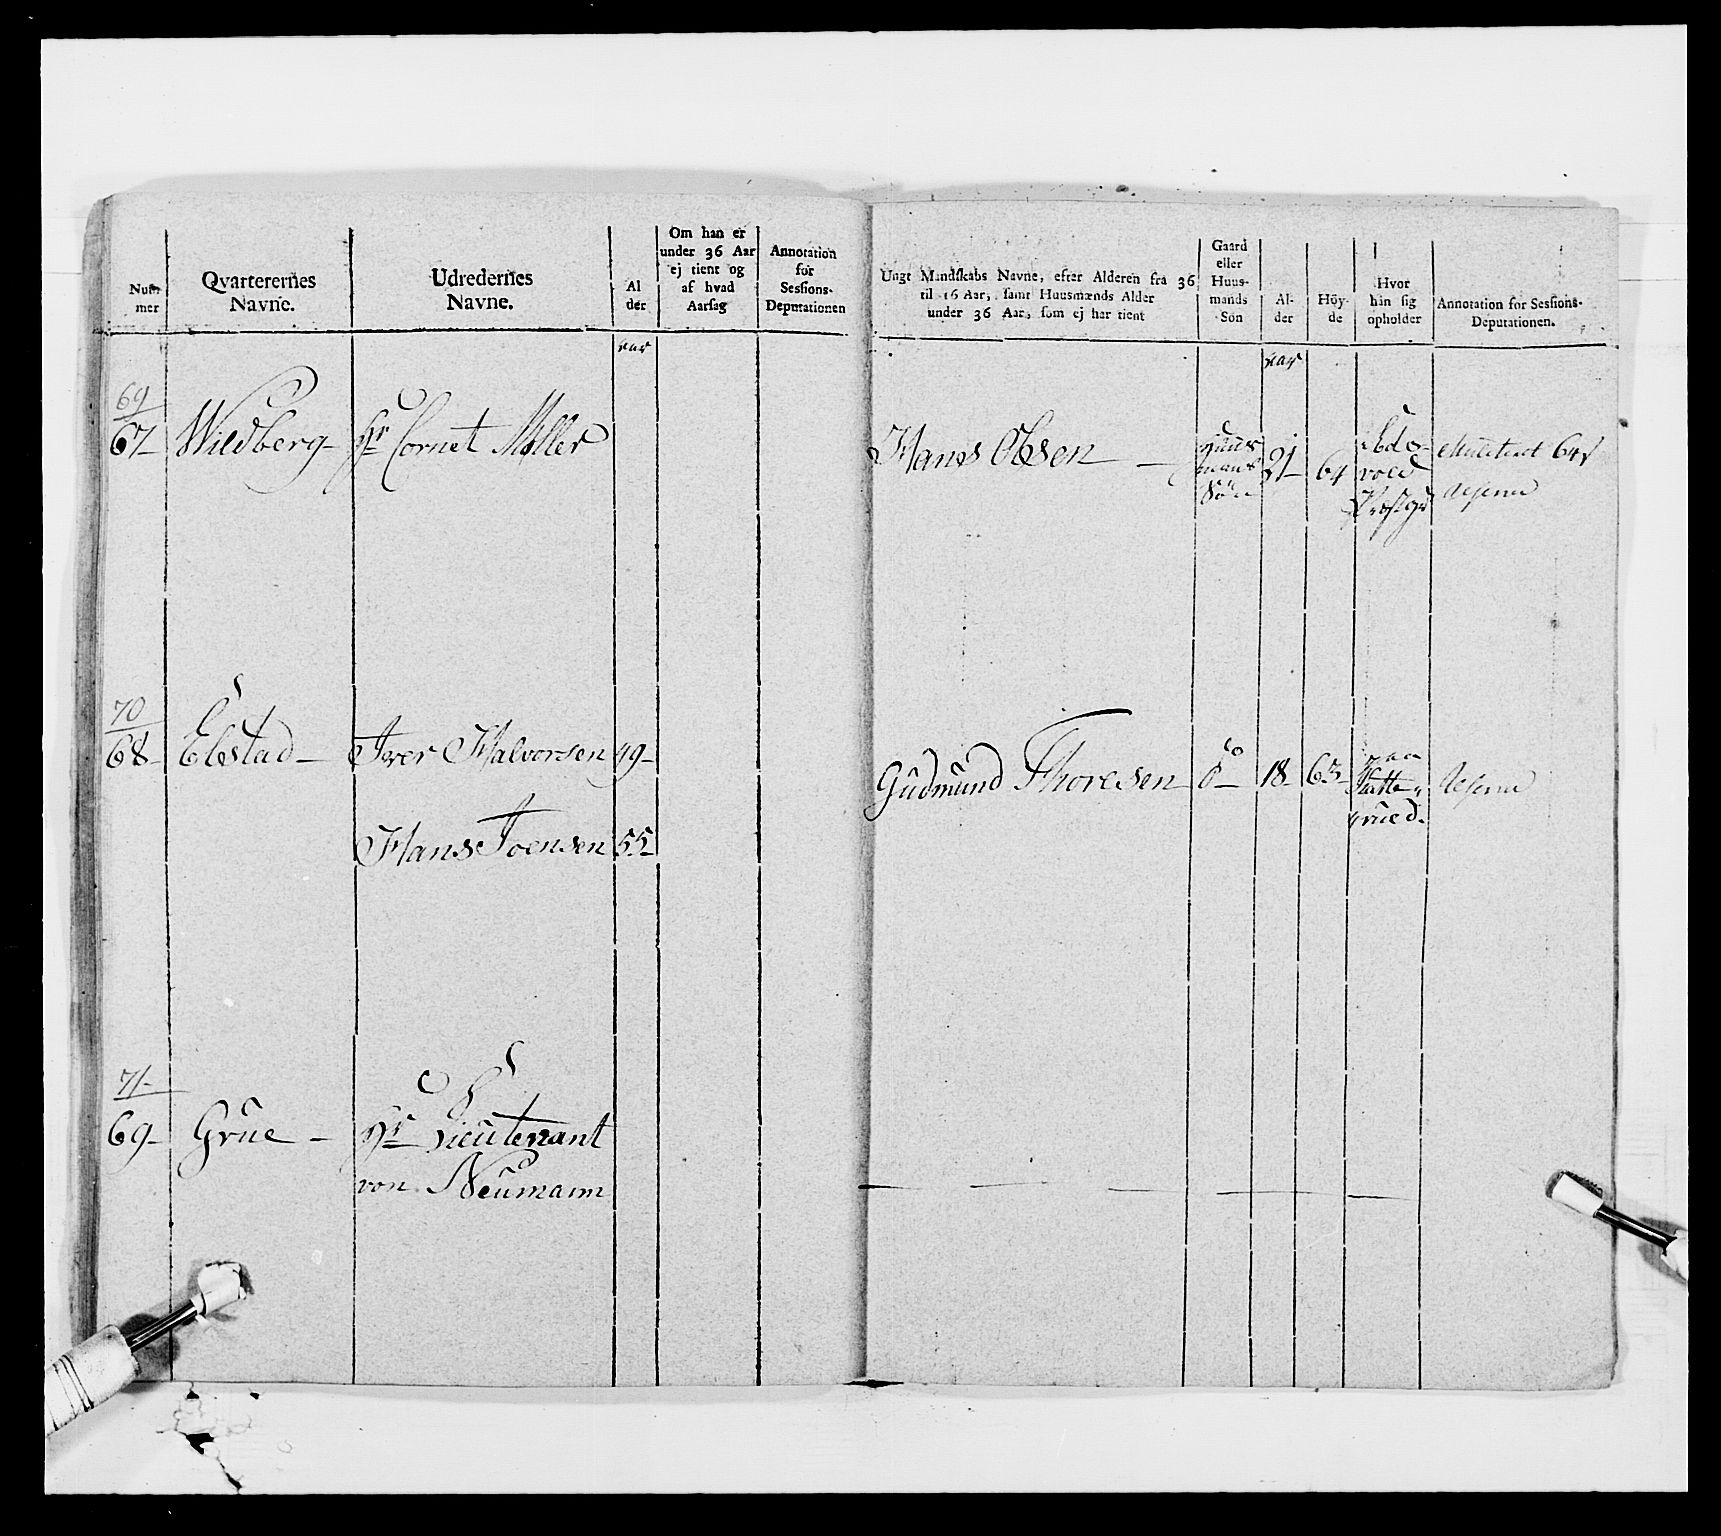 Num
mer
Qvarterernes
Navne.
Udredernes
Navne.
Al
der
Om han er
under 36 Aar
ej tient og
af hvad
Aarsag
Annotation
for
Sessions-
Deputationen
Ungt Mandskabs Navne, efter Alderen fra 36
til 16 Aar, samt Huusmænds Alder
under 36 Aar, som ej har tient
Gaard
eller
Huus-
mands
Søn
Al-
der
Höy-
de
Hvor
han sig
opholder
Annotation for Sessions-
Deputationen.
aar
aar
69
67- Wildberg- Hr Cornet Møller
Hans Olsen - Huus
mans
Søn 21- 64
Prestgd
64
Reserve
70
68- Elstad- Iver Halvorsen 49-
Gudmund Thoresen do- 18- 63- paa
Reserve
Hans Joensen 55-
71-
69- Grue - Hr Lieutenant
von Neumann